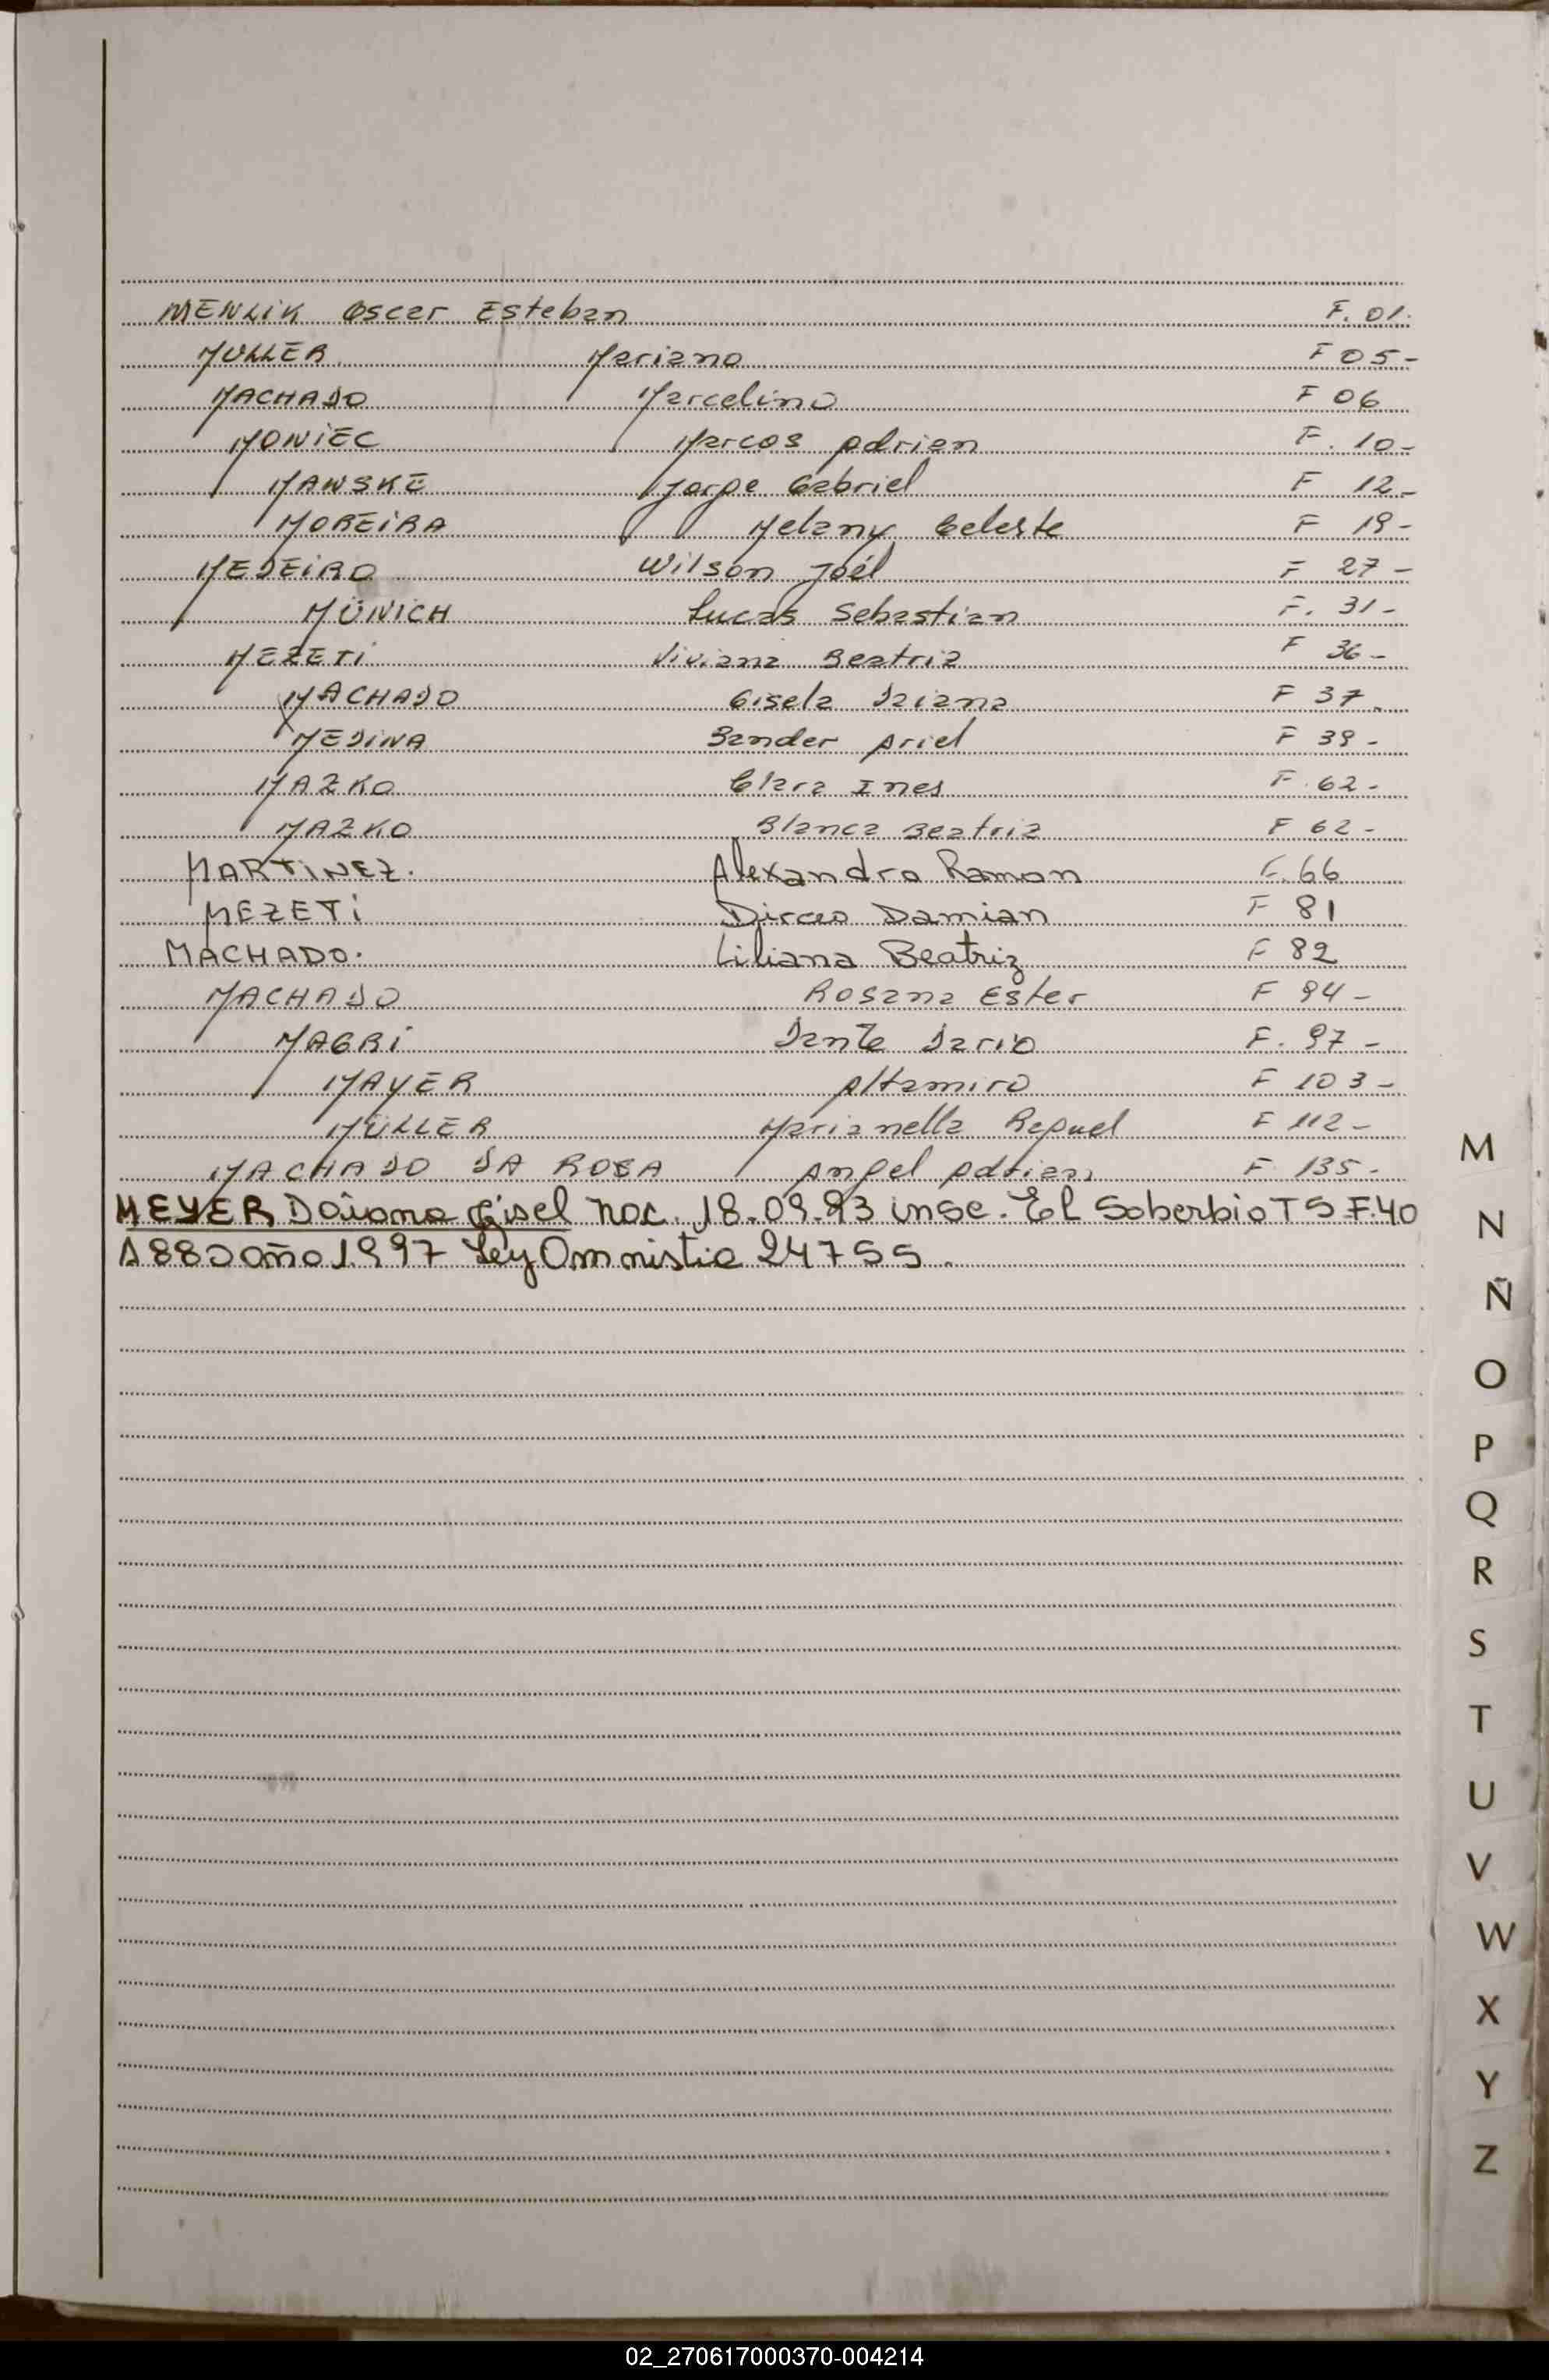 MENLIK Oscar Esteban F. 01.
MULLER Mariano F 05-
MACHADO Marcelino F 06
MONIEC Marcos Adrian F. 10-
MANSKE Jorge Gabriel F 12-
MOREIRA Melany Celeste F 19-
MEDEIRO Wilson Joél F 27-
MÜNICH Lucas Sebastian F. 31-
MEZETI Viviana Beatriz F 36-
MACHADO Gisela Daiana F 37.
MEDINA Sander Ariel F 39-
MAZKO Clara Ines F. 62-
MAZKO Blanca Beatriz F 62-
MARTINEZ. Alexandro Ramon F. 66
MEZETI Dirceo Damian F 81
MACHADO. Liliana Beatriz F 82
MACHADO Rosana Ester F 94-
MAGRI Dante Dario F. 97-
MAYER Altamiro F 103-
MÜLLER Marianella Raquel F 112-
MACHADO DA ROSA Angel Adrian F 135-
MEYER Daiana Gisel Nac. 18.09.93 insc. El Soberbio T 5 F. 40
A 880 año 1.997 Ley Amnistia 24755.
M
N
Ñ
O
P
Q
R
S
T
U
V
W
X
Y
Z
02_270617000370-004214